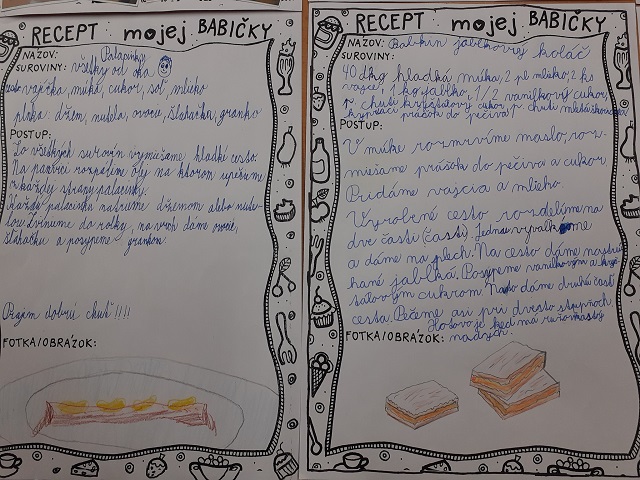 RECEPT mojej BABIČKY
NÁZOV: Palacinky
SUROVINY: všetky od oka
vajíčka, múka, cukor, soľ, mlieko
plnka: džem, nutela, ovocie, šľahačka, granko
POSTUP:
Zo všetkých surovín vymiešame hladké cesto.
Na panvici rozpálim olej na ktorom upečieme
z každej strany palacinky.
Každú palacinku natrieme džemom alebo nute-
lou. Zvinieme do rolky, na vrch dáme ovocie,
šľahačku a posypeme grankom.
Prajem dobrú chuť!!!!
FOTKA/OBRÁZOK:
RECEPT mojej BABIČKY
NÁZOV: Babkin jablkový koláč
SUROVINY:
40 dkg hladká múka, 2 pl mlieko, 2 ks
vajce, 1 kg jablko, 1/2 vanilkový cukor,
chuti kryštálový cukor,
kypriaci prášok do pečiva, chuti mletá škorica
POSTUP:
V múke rozmrvíme maslo, roz-
miešame prášok do pečiva a cukor.
Pridáme vajcia a mlieko.
Vyrobené cesto rozdelíme na
dve časti (časti). Jednu vyvalkáme
a dáme na plech. Na cesto dáme nastrú-
hané jablká. Posypeme vanilkovým a kryš-
tálovým cukrom. dáme druhú časť
cesta. Pečieme asi pri dvesto stupňoch.
Hotovo je keď má ružovkastý
nádych.
FOTKA/OBRÁZOK: